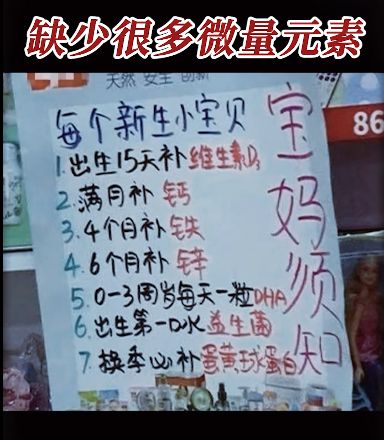 缺少很多微量元素
天然 安全 创新
每个新生小宝贝
1.出生15天补维生素D3
2.满月补 钙
3.4个月补 铁
4.6个月补 锌
5.0-3周岁每天一粒DHA
6.出生第一口水益生菌
7.换季必补蛋黄球蛋白
宝妈须知
86